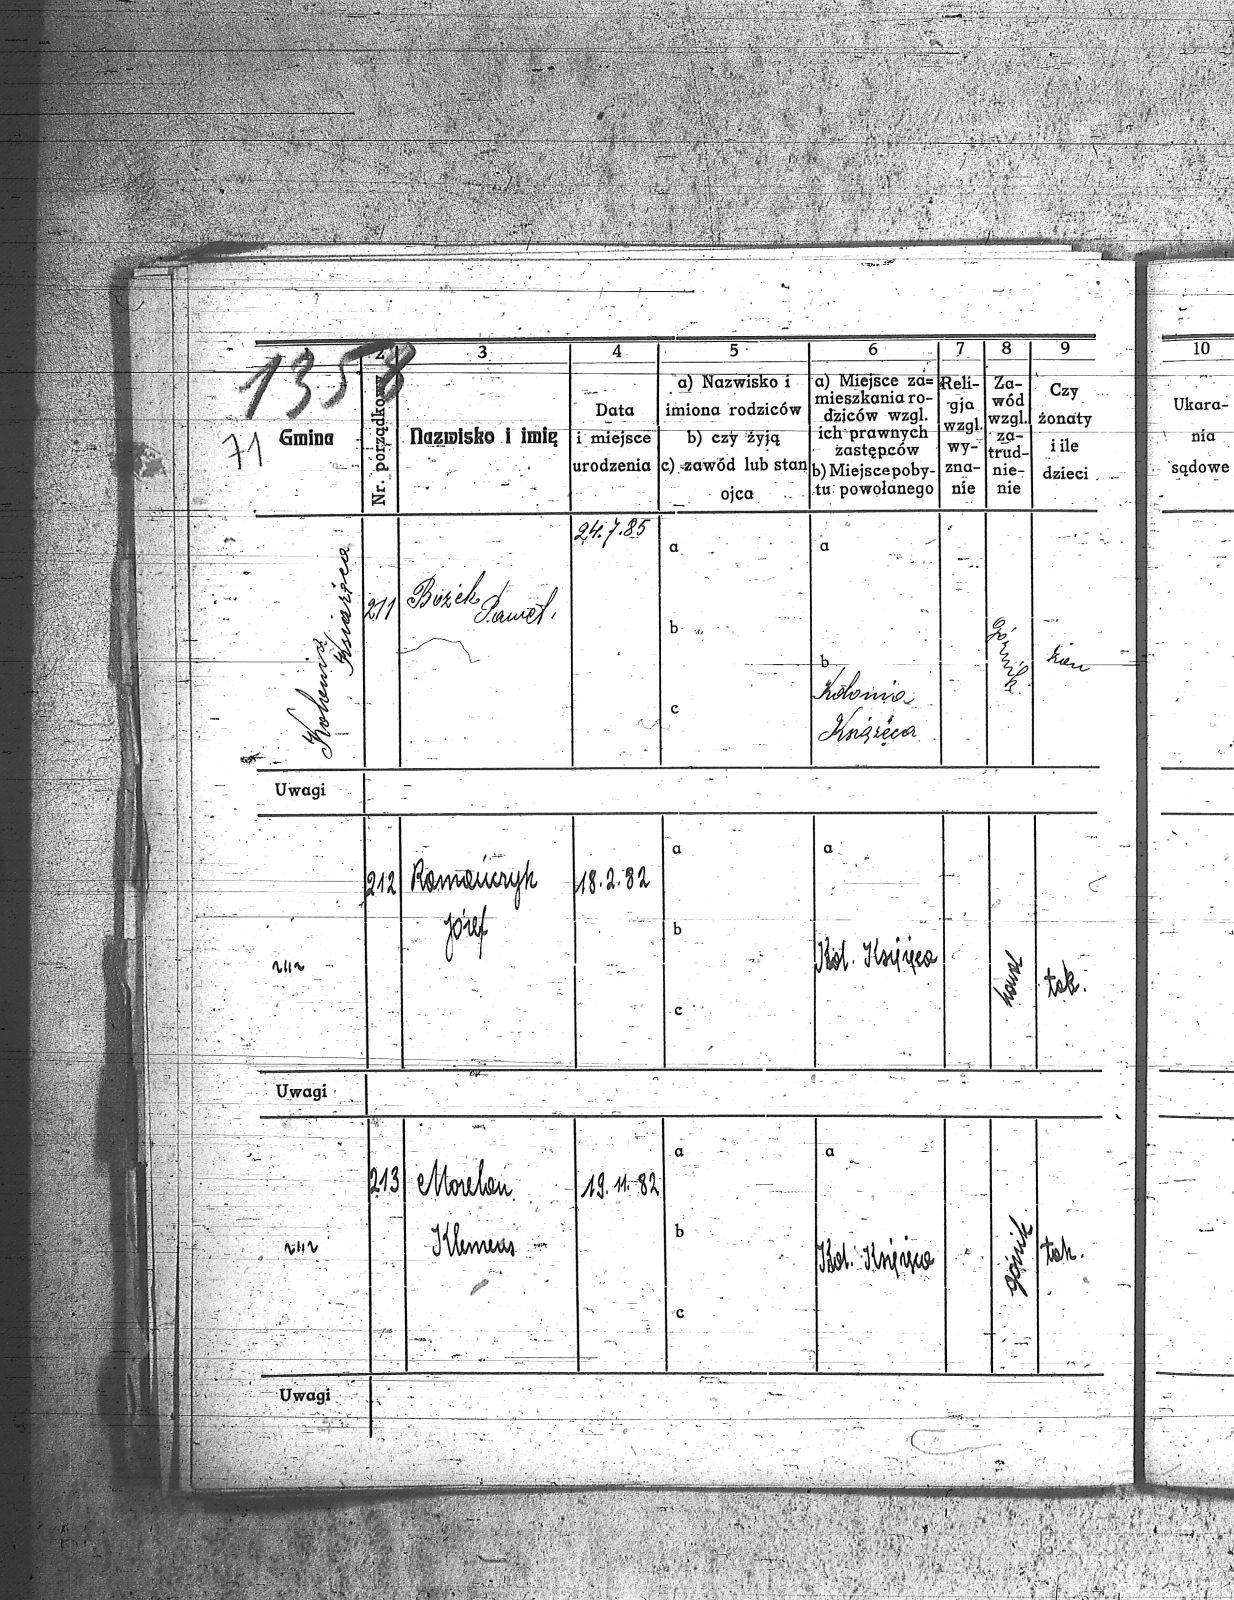 1358
71
2 3 4 5 6 7 8 9 10
Gmina
Nr. porządkowy
Nazwisko i imię
Data
i miejsce
urodzenia
a) Nazwisko i
imiona rodziców
b) czy żyją
c) zawód lub stan
ojca
a) Miejsce za=
mieszkania ro-
dziców wzgl.
ich prawnych
zastępców
b) Miejsce poby-
tu powołanego
Reli-
gja
wzgl.
wy-
zna-
nie
Za-
wód
wzgl.
za-
trud-
nie-
nie
Czy
żonaty
i ile
dzieci
Ukara-
nia
sądowe
Książęca
211
Bożek
Paweł.
24.7.85
a
b
c
a
b
Kolonia
Książęca
górnik
Uwagi
212
Romańczyk
Józef
18.2.82
a
b
c
a
Kol.
tak.
Uwagi
213
Morelan
Klemens
19.11.82
a
b
c
a
Kol.
górnik
tak.
Uwagi